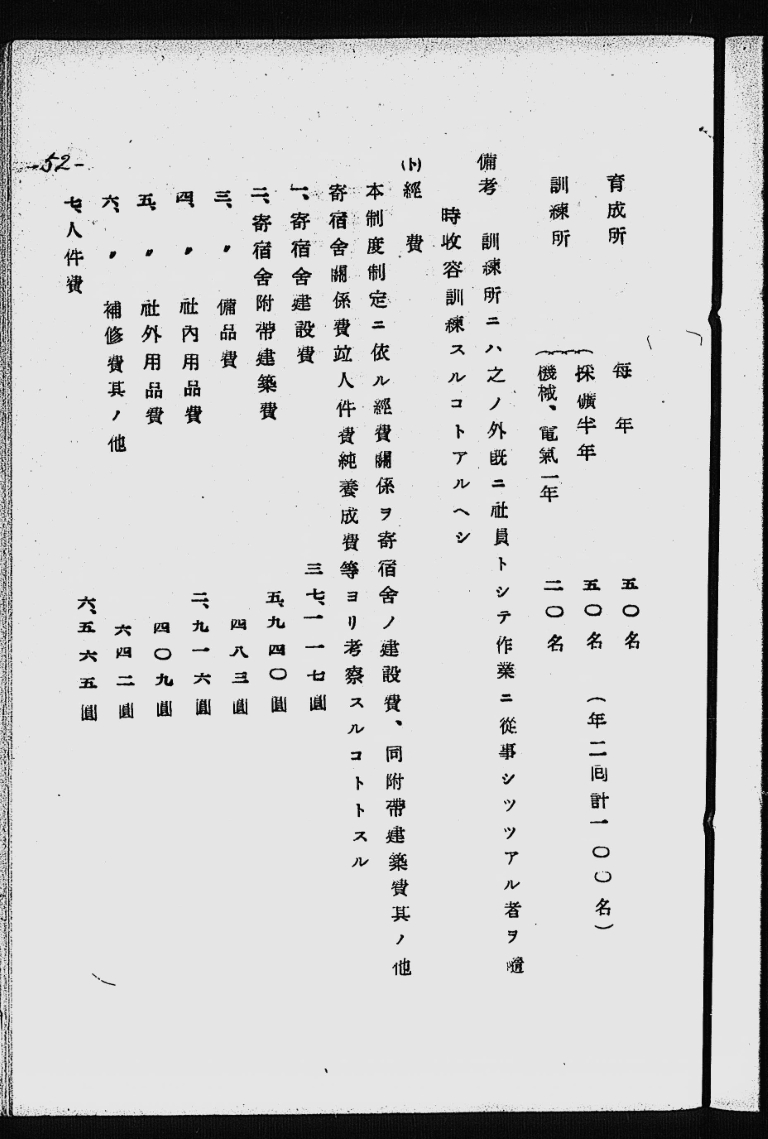 育成所 每年 五〇名
訓練所 採礦半年 五〇名 (年二回計一〇〇名)
機械、電氣一年 二〇名
備考 訓練所ニハ之ノ外既ニ社員トシテ作業ニ從事シツツアル者ヲ隨
時收容訓練スルコトアルヘシ
(ト)經費
本制度制定ニ依ル經費關係ヲ寄宿舍ノ建設費、同附帶建築費其ノ他
寄宿舍關係費竝人件費純養成費等ヨリ考察スルコトトスル
一、寄宿舍建設費 三七、一一七圓
二、寄宿舍附帶建築費 五、九四〇圓
三、〃 備品費 四八三圓
四、〃 社內用品費 二、九一六圓
五、〃 社外用品費 四〇九圓
六、〃 補修費其ノ他 六四二圓
七、人件費 六、五六五圓
-52-